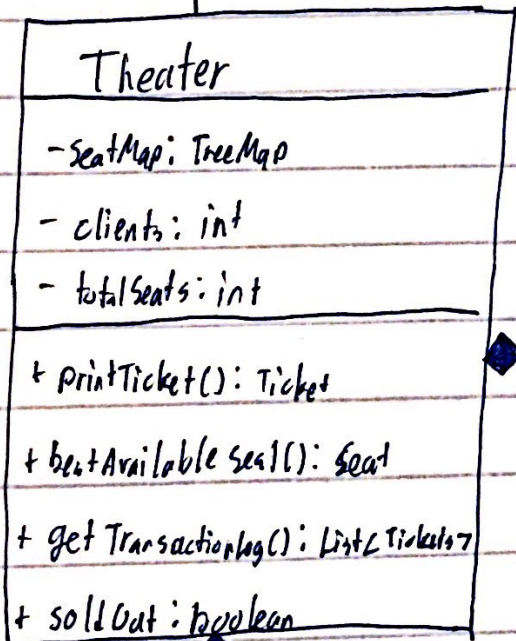 Theater
- seatMap: TreeMap
- clients: int
- totalSeats: int
+ printTicket(): Ticket
+ bestAvailableSeat(): Seat
+ getTransactionLog(): List<Tickets>
+ soldOut: boolean